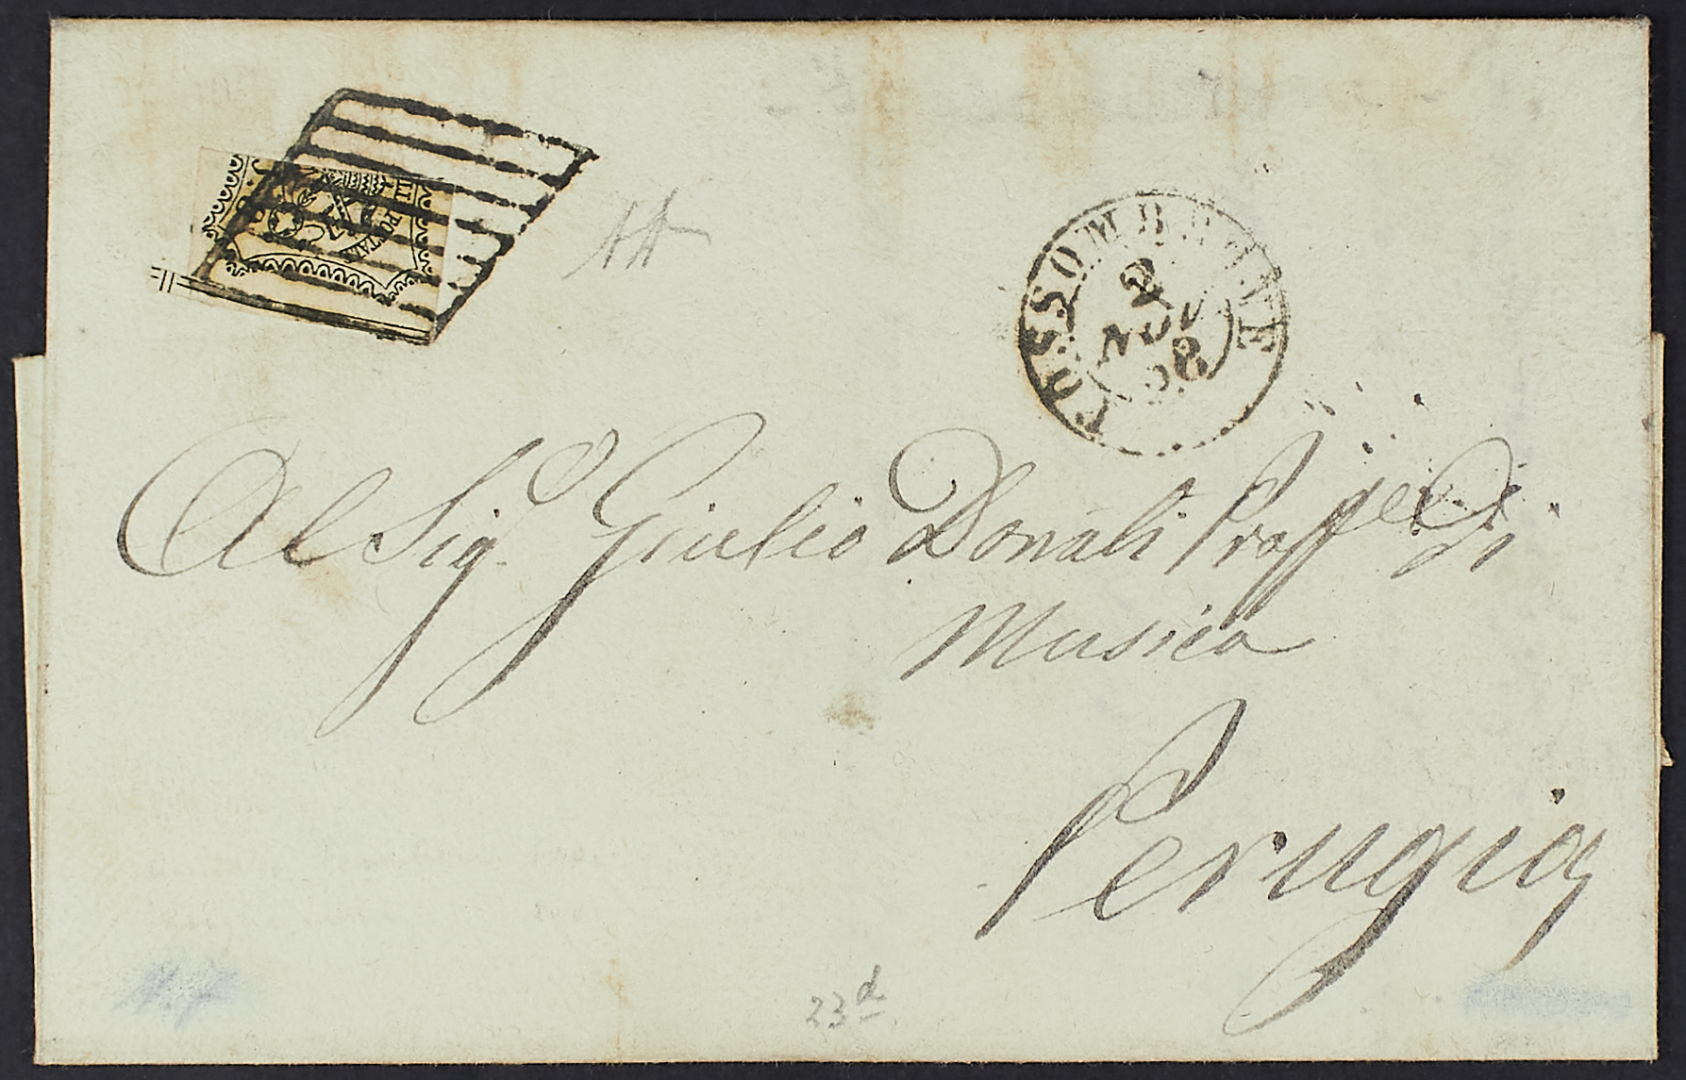 LI. POSTALE
FOSSOMBRONE
2
NOV
58
Al Sigr Giulio Donati Proffe Di
Musica
Perugia
23d